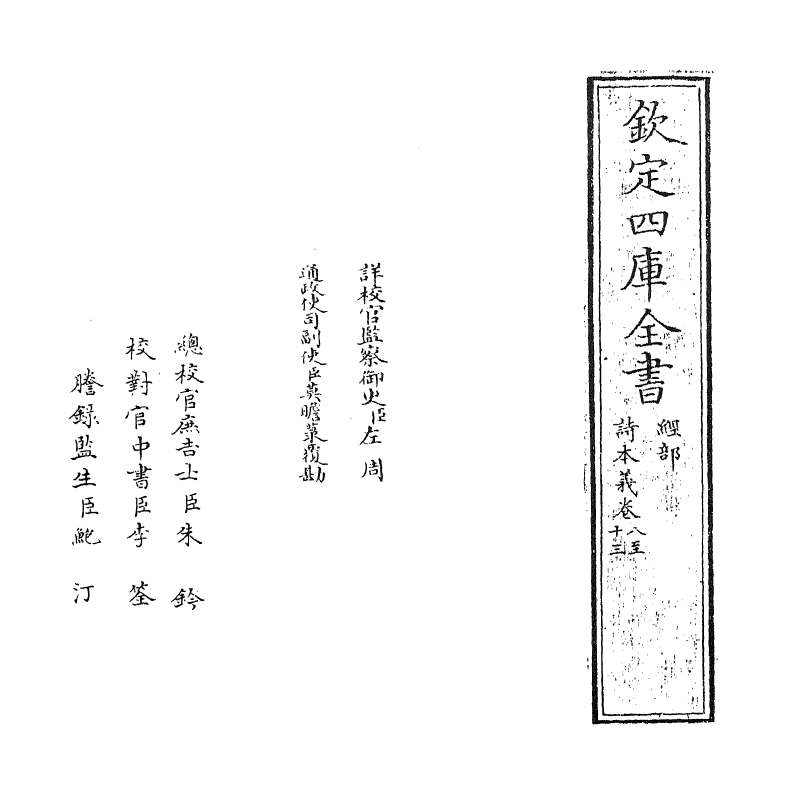 欽定四庫全書
經部
詩本義卷八至十三
詳校官監察御史臣左周
通政使司副使臣莫瞻菉覆勘
總校官庶吉士臣朱鈐
校對官中書臣李荃
謄錄監生臣鮑汀